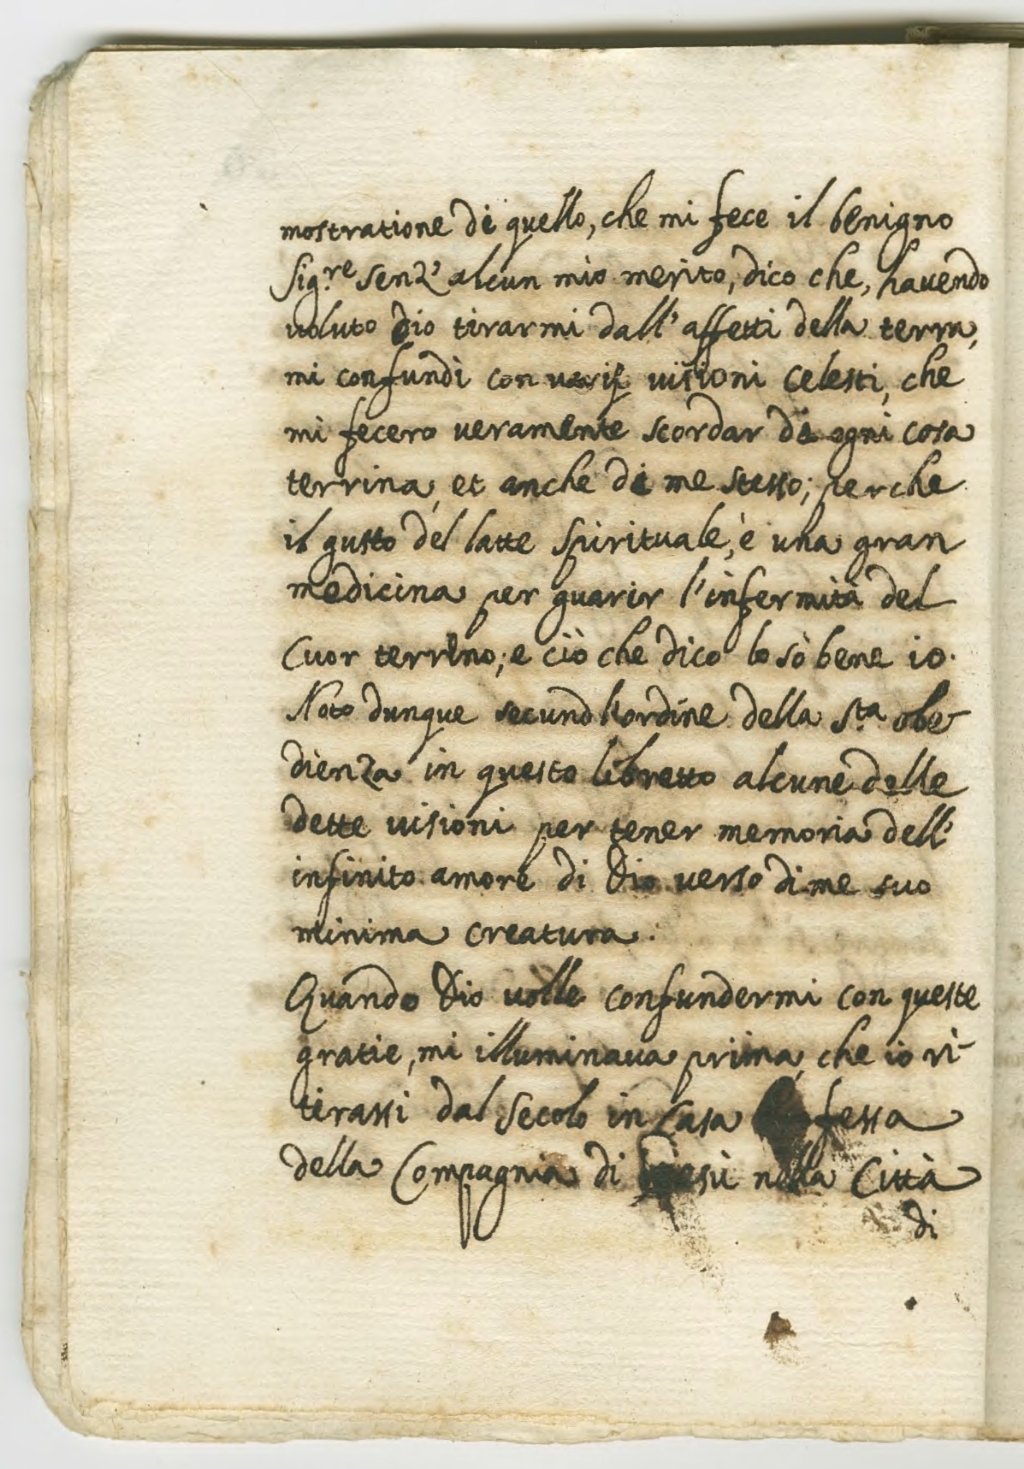 mostratione di quello, che mi fece il benigno
Sig.re senz' alcun mio merito, dico che, havendo
uoluto Dio tirarmi dall' affetti della terra,
mi confundì con varij visioni Celesti, che
mi fecero veramente scordar di ogni cosa
terrina, et anche di me stesso; perche
il gusto del latte spirituale, è una gran
medicina per guarir l'infermità del
Cuor terrino; e ciò che dico lo sò bene io.
Noto dunque secund l'ordine della S.ta obe-
dienza in questo libretto alcune delle
dette uisioni per tener memoria dell'
infinito amore di Dio verso di me suo
minima creatura.
Quando Dio volle confundermi con queste
gratie, mi illuminaua prima, che io ri-
tirassi dal secolo in Casa fessa
della Compagnia di Giesù nella Città
di